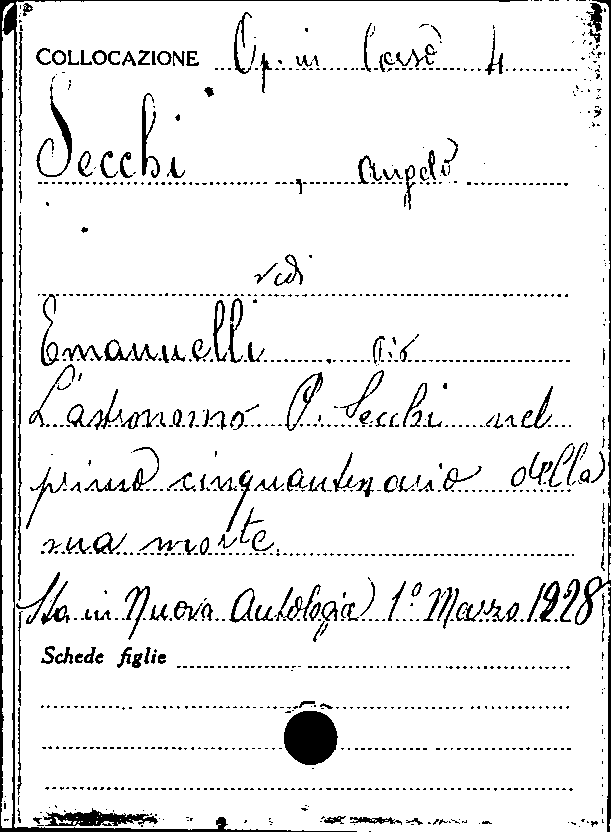 COLLOCAZIONE Op. in Corso 4
Secchi, Angelo
vedi
Emanuelli. Pio
L'astronomo P. Secchi nel
primo cinquantenario della
sua morte.
Sta in Nuova Antologia 1° Marzo 1928
Schede figlie